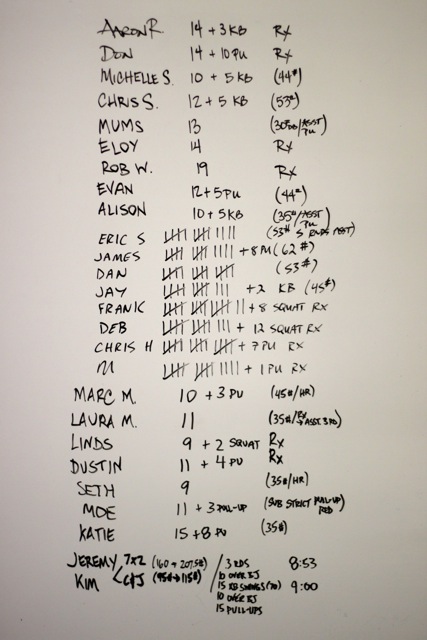 AARON R. 14 + 3 KB Rx
DON 14 + 10 PU Rx
MICHELLE S. 10 + 5 KB (44#)
CHRIS S. 12 + 5 KB (53#)
MUMS 13 (30#/ASST PU)
ELOY 14 Rx
ROB W. 19 Rx
EVAN 12 + 5 PU (44#)
ALISON 10 + 5 KB (35#/ASST PU)
ERIC S |||| |||| |||| (53# 5 RNDS ASST)
JAMES |||| |||| |||| + 8 (62#)
DAN |||| |||| |||| (53#)
JAY |||| |||| ||| + 2 KB (45#)
FRANK |||| |||| |||| || + 8 SQUAT RX
DEB |||| |||| ||| + 12 SQUAT RX
CHRIS H |||| |||| |||| + 7 PU RX
|||| |||| |||| + 1 PU RX
MARC M. 10 + 3 PU (45#/HR)
LAURA M. 11 (35#/Rx → ASST. 3 RD)
LINDS 9 + 2 SQUAT Rx
DUSTIN 11 + 4 PU Rx
SETH 9 (35#/HR)
MOE 11 + 3 PULL-UP (SUB STRICT PULL-UP) RED
KATIE 15 + 8 PU (35#)
JEREMY 7x2 (160 → 207.5#) / 3 RDS 8:53
KIM C+J (95# → 115#) 10 OVER BJ 9:00
15 KB SWINGS (70)
10 OVER BJ
15 PULL-UPS